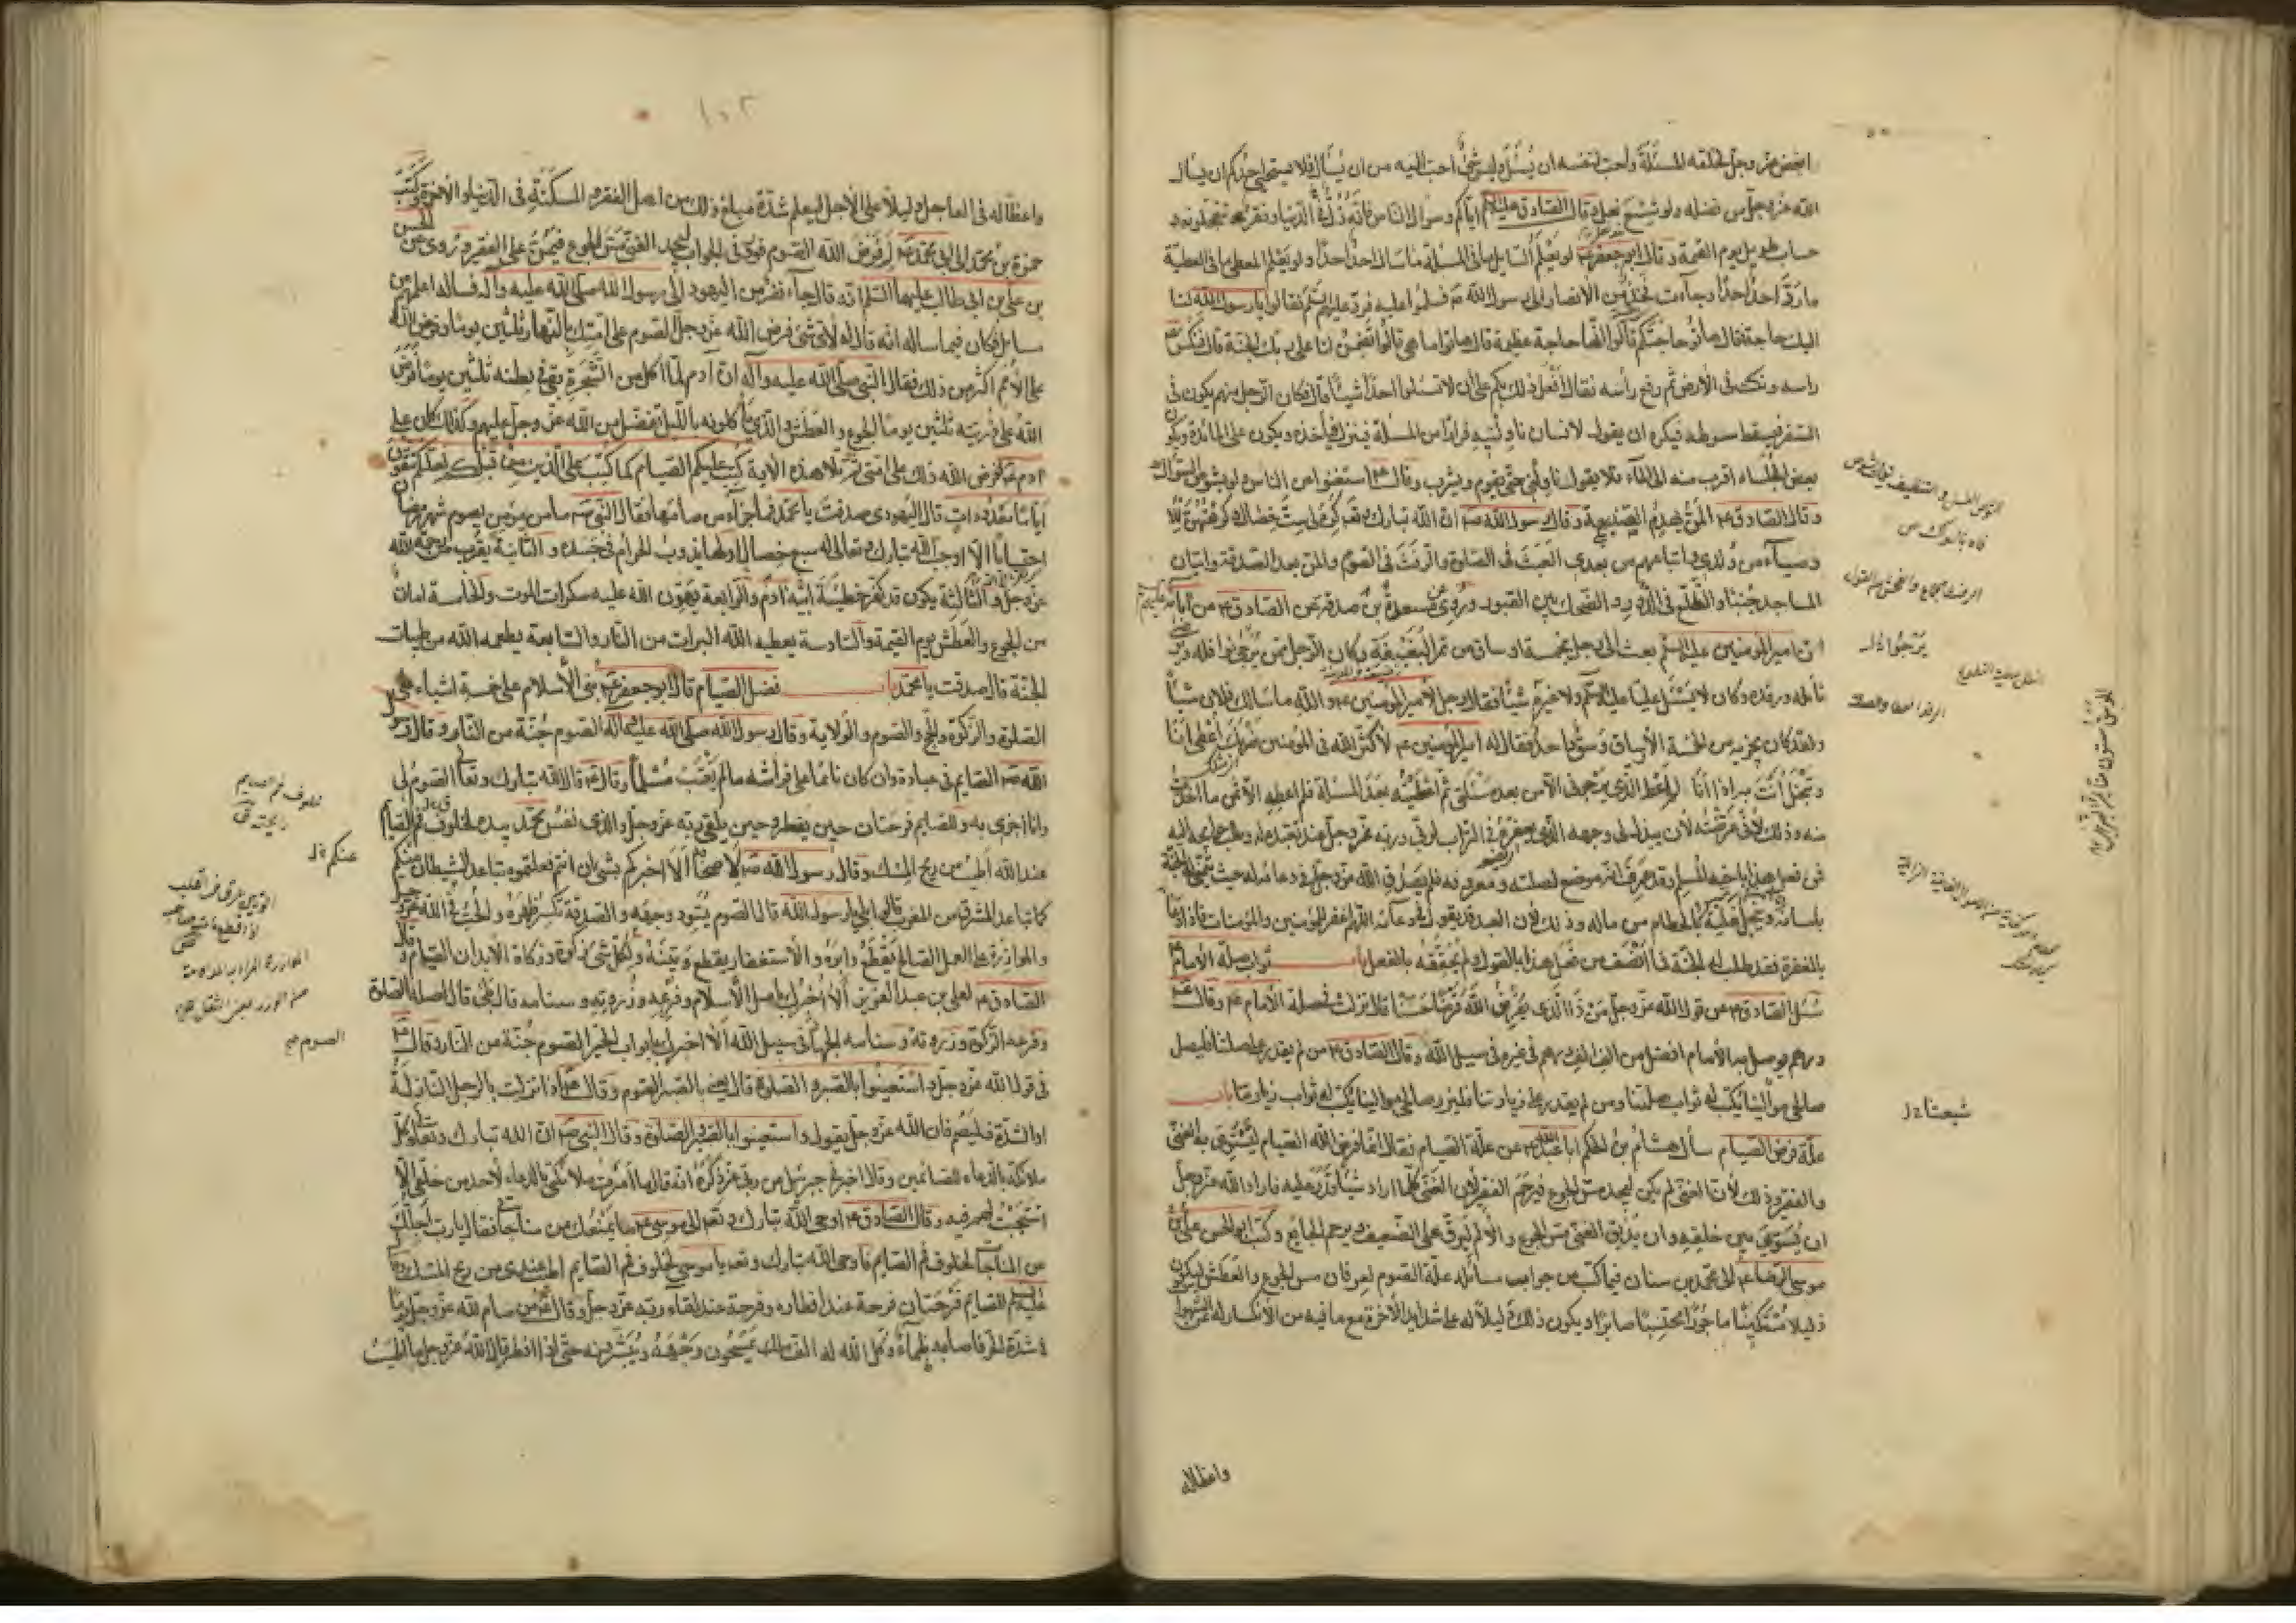 ابغض عز وجل لخلقه المسئلة واحب لنفسه ان يُسئل وليس شئ احب اليه من ان يُسأل فلا يستحيى احدكم ان يسأل
الله عز وجل من فضله ولو شسع نعل وقال الصادق عليه السلم اياكم وسوال الناس فانه ذل في الدنيا وفقر تتعجلونه و
حساب طويل يوم القيمة وقال ابو جعفر ع لو يعلم السايل ما في المسئلة ما سأل احد احدا ولو يعلم المعطى ما في العطية
ما رد احد احدا وجاءت فخذ من الانصار الى رسول الله ص فسلموا عليه فرد عليهم السلم فقالوا يا رسول الله لنا
اليك حاجة فقال هاتوا حاجتكم قالوا انها حاجة عظيمة قال هاتوا ما هي قالوا تضمن لنا على ربك الجنة قال فنكس ص
راسه ونكت في الارض ثم رفع رأسه فقال افعل ذلك بكم على ان لا تسئلوا احدا شيئا قال فكان الرجل منهم يكون في
السفر فيسقط سوطه فيكره ان يقول لانسان ناولنيه فرارا من المسئلة فينزل فياخذه ويكون على المائدة ويكون
بعض الجلساء اقرب منه الى الماء فلا يقول ناولني حتى يقوم ويشرب وقال ع استغنوا عن الناس ولو بشوص السواك
وقال الصادق ع المن يهدم الصنيعة وقال رسول الله ص ان الله تبارك وتعالى كره لي ست خصال وكرهتهن للا
وصياء من ولدي واتباعهم من بعدي العبث في الصلوة والرفث في الصوم والمن بعد الصدقة واتيان
المساجد جنبا والتطلع في الدور والضحك بين القبور وروى عن مسعدة بن صدقة عن الصادق ع عن آبائه عليهم
ان امير المؤمنين عليه السلم بعث الى رجل بخمسة اوساق من تمر البغيبغة وكان الرجل ممن يرجى نوافله و
نائله ورفده وكان لا يسئل عليا عليه السلم ولا غيره شيئا فقال رجل لامير المؤمنين ع والله ما سالك فلان شيئا
ولقد كان يجزيه من الخمسة الاوساق وسق واحد فقال له امير المؤمنين ع لا كثر الله في المؤمنين ضربك اعطى انا
وتبخل انت به اذا انا لم اعط الذي يرجوني الا من بعد مسئلتي ثم اعطيته بعد المسئلة فلم اعطه الا ثمن ما اخذت
منه وذلك لاني عرضته لان يبذل لي وجهه الذي يعفره في التراب لربي وربه عز وجل عند تعبده له وطلب حوايجه اليه
فمن فعل هذا باخيه المسلم وقد عرف انه موضع لصلته ومعروفه فلم يصدق الله عز وجل في دعائه له حيث يتمنى له الجنة
بلسانه ويبخل عليه بالحطام من ماله وذلك ان العبد قد يقول في دعائه اللهم اغفر للمؤمنين والمؤمنات فاذا دعا
بالمغفرة فقد طلب له الجنة فما انصف من فعل هذا بالقول ولم يحققه بالفعل باب ثواب صلة الامام ع
سئل الصادق ع عن قول الله عز وجل من ذا الذي يقرض الله قرضا حسنا قال نزلت في صلة الامام ع وقال ع
درهم يوصل به الامام افضل من الف الف درهم في غيره في سبيل الله وقال الصادق ع من لم يقدر على صلتنا فليصل
صالحي موالينا يكتب له ثواب صلتنا ومن لم يقدر على زيارتنا فليزر صالحي موالينا يكتب له ثواب زيارتنا باب
علة فرض الصيام سأل هشام بن الحكم ابا عبد الله ع عن علة الصيام فقال انما فرض الله الصيام ليستوي به الغني
والفقير وذلك لان الغني لم يكن ليجد مس الجوع فيرحم الفقير لان الغني كلما اراد شيئا قدر عليه فاراد الله عز وجل
ان يسوي بين خلقه وان يذيق الغني مس الجوع والالم ليرق على الضعيف ويرحم الجايع وكتب ابو الحسن علي بن
موسى الرضا ع الى محمد بن سنان فيما كتب من جواب مسائله علة الصوم لعرفان مس الجوع والعطش ليكون
ذليلا مستكينا ماجورا محتسبا صابرا ويكون ذلك دليلا له على شدايد الاخرة مع ما فيه من الانكسار له عن الشهوات
واعظا له
يرجو اذل
شيعتنا ذل
١٥٢
واعظا له في العاجل دليلا على الاجل ليعلم شدة مبلغ ذلك من اهل الفقر والمسكنة في الدنيا والاخرة وكتب
حمزة بن محمد الى ابي محمد ع لم فرض الله الصوم فورد في الجواب ليجد الغني مس الجوع فيمن على الفقير وروى عن الحسن
بن علي بن ابي طالب عليهما السلم انه قال جاء نفر من اليهود الى رسول الله صلى الله عليه وآله فساله اعلمهم عن
مسايل فكان فيما ساله انه قال له لأي شئ فرض الله عز وجل الصوم على امتك بالنهار ثلثين يوما وفرض الله
على الامم اكثر من ذلك فقال النبي صلى الله عليه وآله ان آدم لما اكل من الشجرة بقي في بطنه ثلثين يوما ففرض
الله على ذريته ثلثين يوما الجوع والعطش والذي ياكلونه بالليل تفضل من الله عز وجل عليهم وكذلك كان على
ادم ع ففرض الله ذلك على امتي ثم تلا هذه الاية كتب عليكم الصيام كما كتب على الذين من قبلكم لعلكم تتقون
اياما معدودات قال اليهودي صدقت يا محمد فما جزاء من صامها فقال النبي ص ما من مؤمن يصوم شهر رمضان
احتسابا الا اوجب الله تبارك وتعالى له سبع خصال اولها يذوب الحرام في جسده والثانية يقرب من رحمة الله
عز وجل والثالثة يكون قد كفر خطيئة ابيه آدم والرابعة يهون الله عليه سكرات الموت والخامسة امان
من الجوع والعطش يوم القيمة والسادسة يعطيه الله البراءت من النار والسابعة يطعمه الله من طيبات
الجنة قال صدقت يا محمد باب فضل الصيام قال ابو جعفر ع بنى الاسلام على خمسة اشياء على
الصلوة والزكوة والحج والصوم والولاية وقال رسول الله صلى الله عليه وآله الصوم جنة من النار وقال رسول
الله ص الصايم في عبادة وان كان نائما على فراشه ما لم يغتب مسلما وقال ع قال الله تبارك وتعالى الصوم لي
وانا اجزى به وللصايم فرحتان حين يفطر وحين يلقى ربه عز وجل والذي نفس محمد بيده لخلوف فم الصايم
عند الله اطيب من ريح المسك وقال رسول الله ص لاصحابه الا اخبركم بشئ ان انتم فعلتموه تباعد الشيطان عنكم
كما تباعد المشرق من المغرب قالوا بلى يا رسول الله قال الصوم يسود وجهه والصدقة تكسر ظهره والحب في الله عز وجل
والموازرة على العمل الصالح يقطع دابره والاستغفار يقطع وتينه ولكل شئ زكوة وزكاة الابدان الصيام وقال
الصادق ع لعلي بن عبد العزيز الا اخبرك باصل الاسلام وفرعه وذروته وسنامه قال بلى قال اصله الصلوة
وفرعه الزكوة وذروته وسنامه الجهاد في سبيل الله الا اخبرك بابواب الخير الصوم جنة من النار وقال ع
في قول الله عز وجل واستعينوا بالصبر والصلوة قال يعني بالصبر الصوم وقال ع اذا نزلت بالرجل النازلة
او الشدة فليصم فان الله عز وجل يقول واستعينوا بالصبر والصلوة وقال النبي ص ان الله تبارك وتعالى وكل
ملائكة بالدعاء للصائمين وقال اخبرني جبرئيل عن ربي عز ذكره انه قال ما امرت ملائكتي بالدعاء لاحد من خلقي الا
استجبت لهم فيه وقال الصادق ع اوحى الله تبارك وتعالى الى موسى ع ما يمنعك من مناجاتي فقال يا رب اجلك
عن المناجاة لخلوف فم الصايم فاوحى الله تبارك وتعالى يا موسى لخلوف فم الصايم اطيب عندي من ريح المسك وقال
عليه السلم للصايم فرحتان فرحة عند افطاره وفرحة عند لقاء ربه عز وجل وقال ع من صام لله عز وجل يوما
في شدة الحر فاصابه ظمأ وكل الله له الف ملك يمسحون وجهه ويبشرونه حتى اذا افطر قال الله عز وجل ما اطيب
خلوف فم الصايم
عنكم ذل
الصوم صح